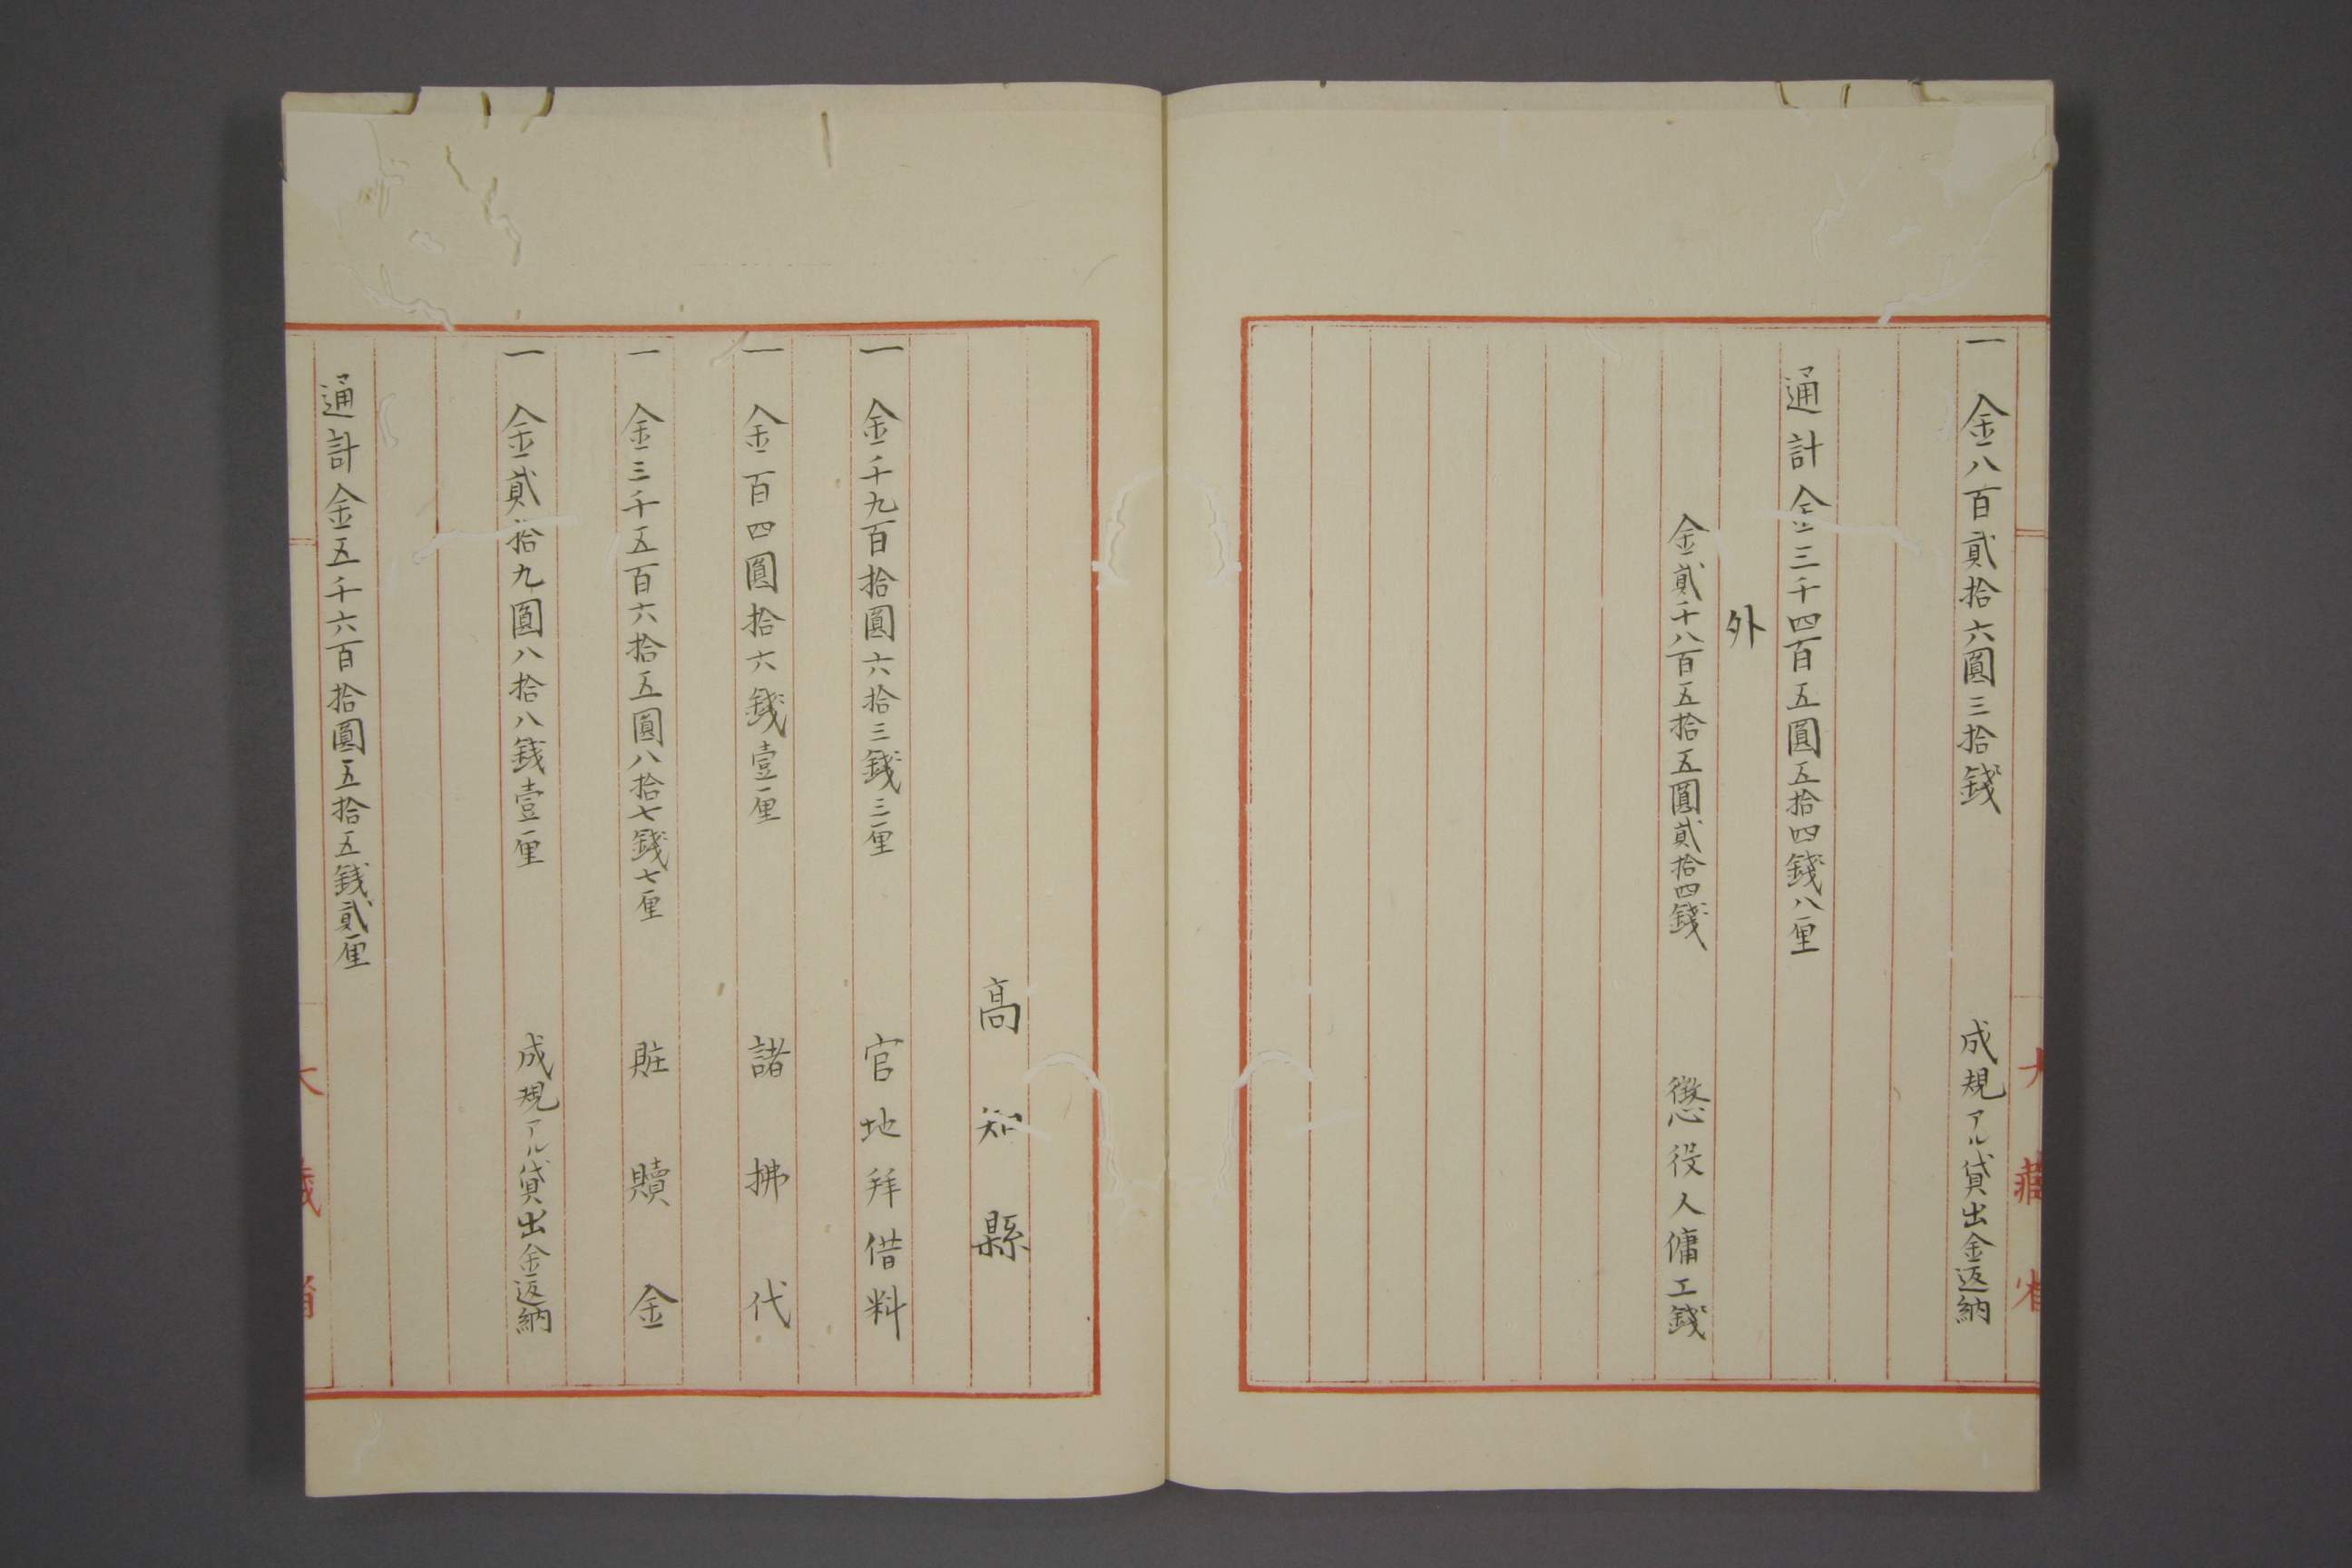 一 金八百貳拾六圓三拾錢 成規アル貸出金返納
通計金三千四百五圓五拾四錢八厘
外
金貳千八百五拾五圓貳拾四錢 懲役人傭工錢
高知縣
一 金千九百拾圓六拾三錢三厘 官地拜借料
一 金百四圓拾六錢壹厘 諸拂代
一 金三千五百六拾五圓八拾七錢七厘 賍贖金
一 金貳拾九圓八拾八錢壹厘 成規アル貸出金返納
通計金五千六百拾圓五拾五錢貳厘